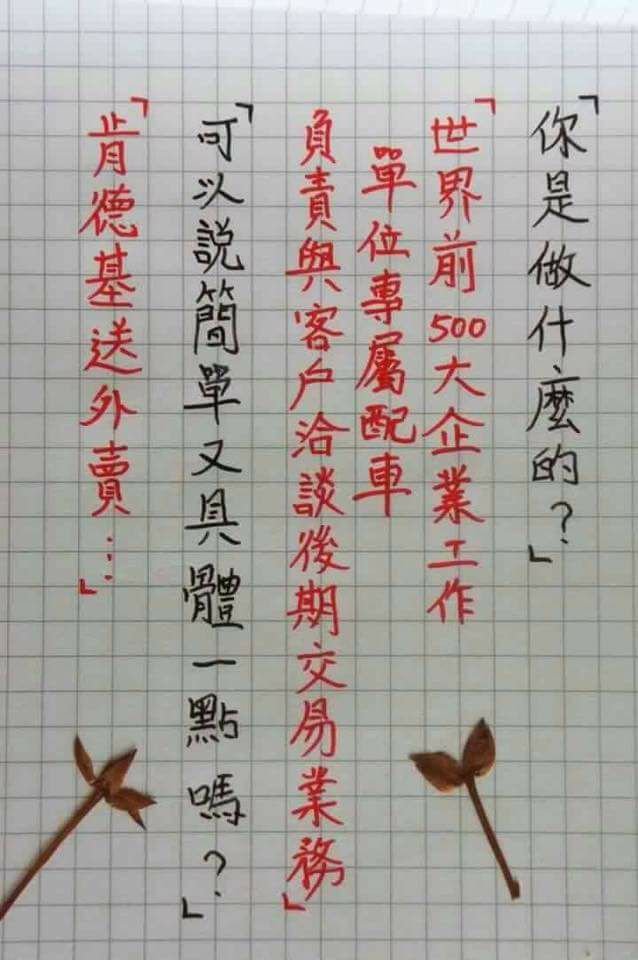 「你是做什麼的？」
「世界前500大企業工作
單位專屬配車
負責與客戶洽談後期交易業務」
「可以說簡單又具體一點嗎？」
「肯德基送外賣…」